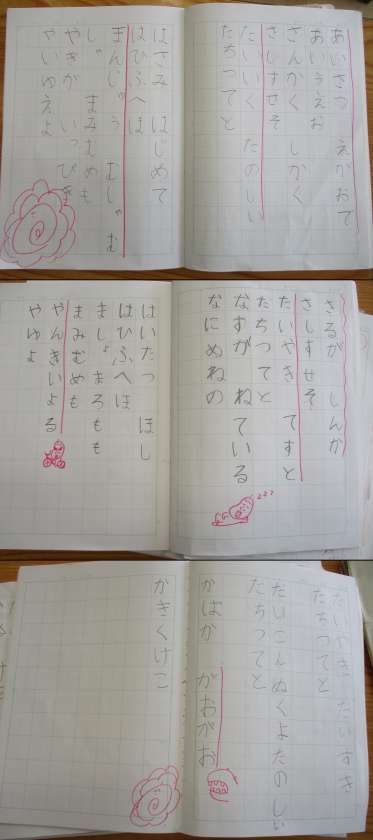 あいさつ えがおで
あいうえお
さんかく しかく
さしすせそ
たいいく たのしい
たちつてと
はさみ はじめて
はひふへほ
まんじゅう むしゃ む
しゃ まみむめも
やきが いっぴき
やいゆえよ
さるが しんか
さしすせそ
たいやき てすと
たちつてと
なすが ねている
なにぬねの
はいたつ ほし
はひふへほ
ましょまろもも
まみむめも
やんきいよる
やゆよ
たいやきだいすき
たちつてと
だいこんぬくよたのしい
たちつてと
かばが がおがお
かきくけこ